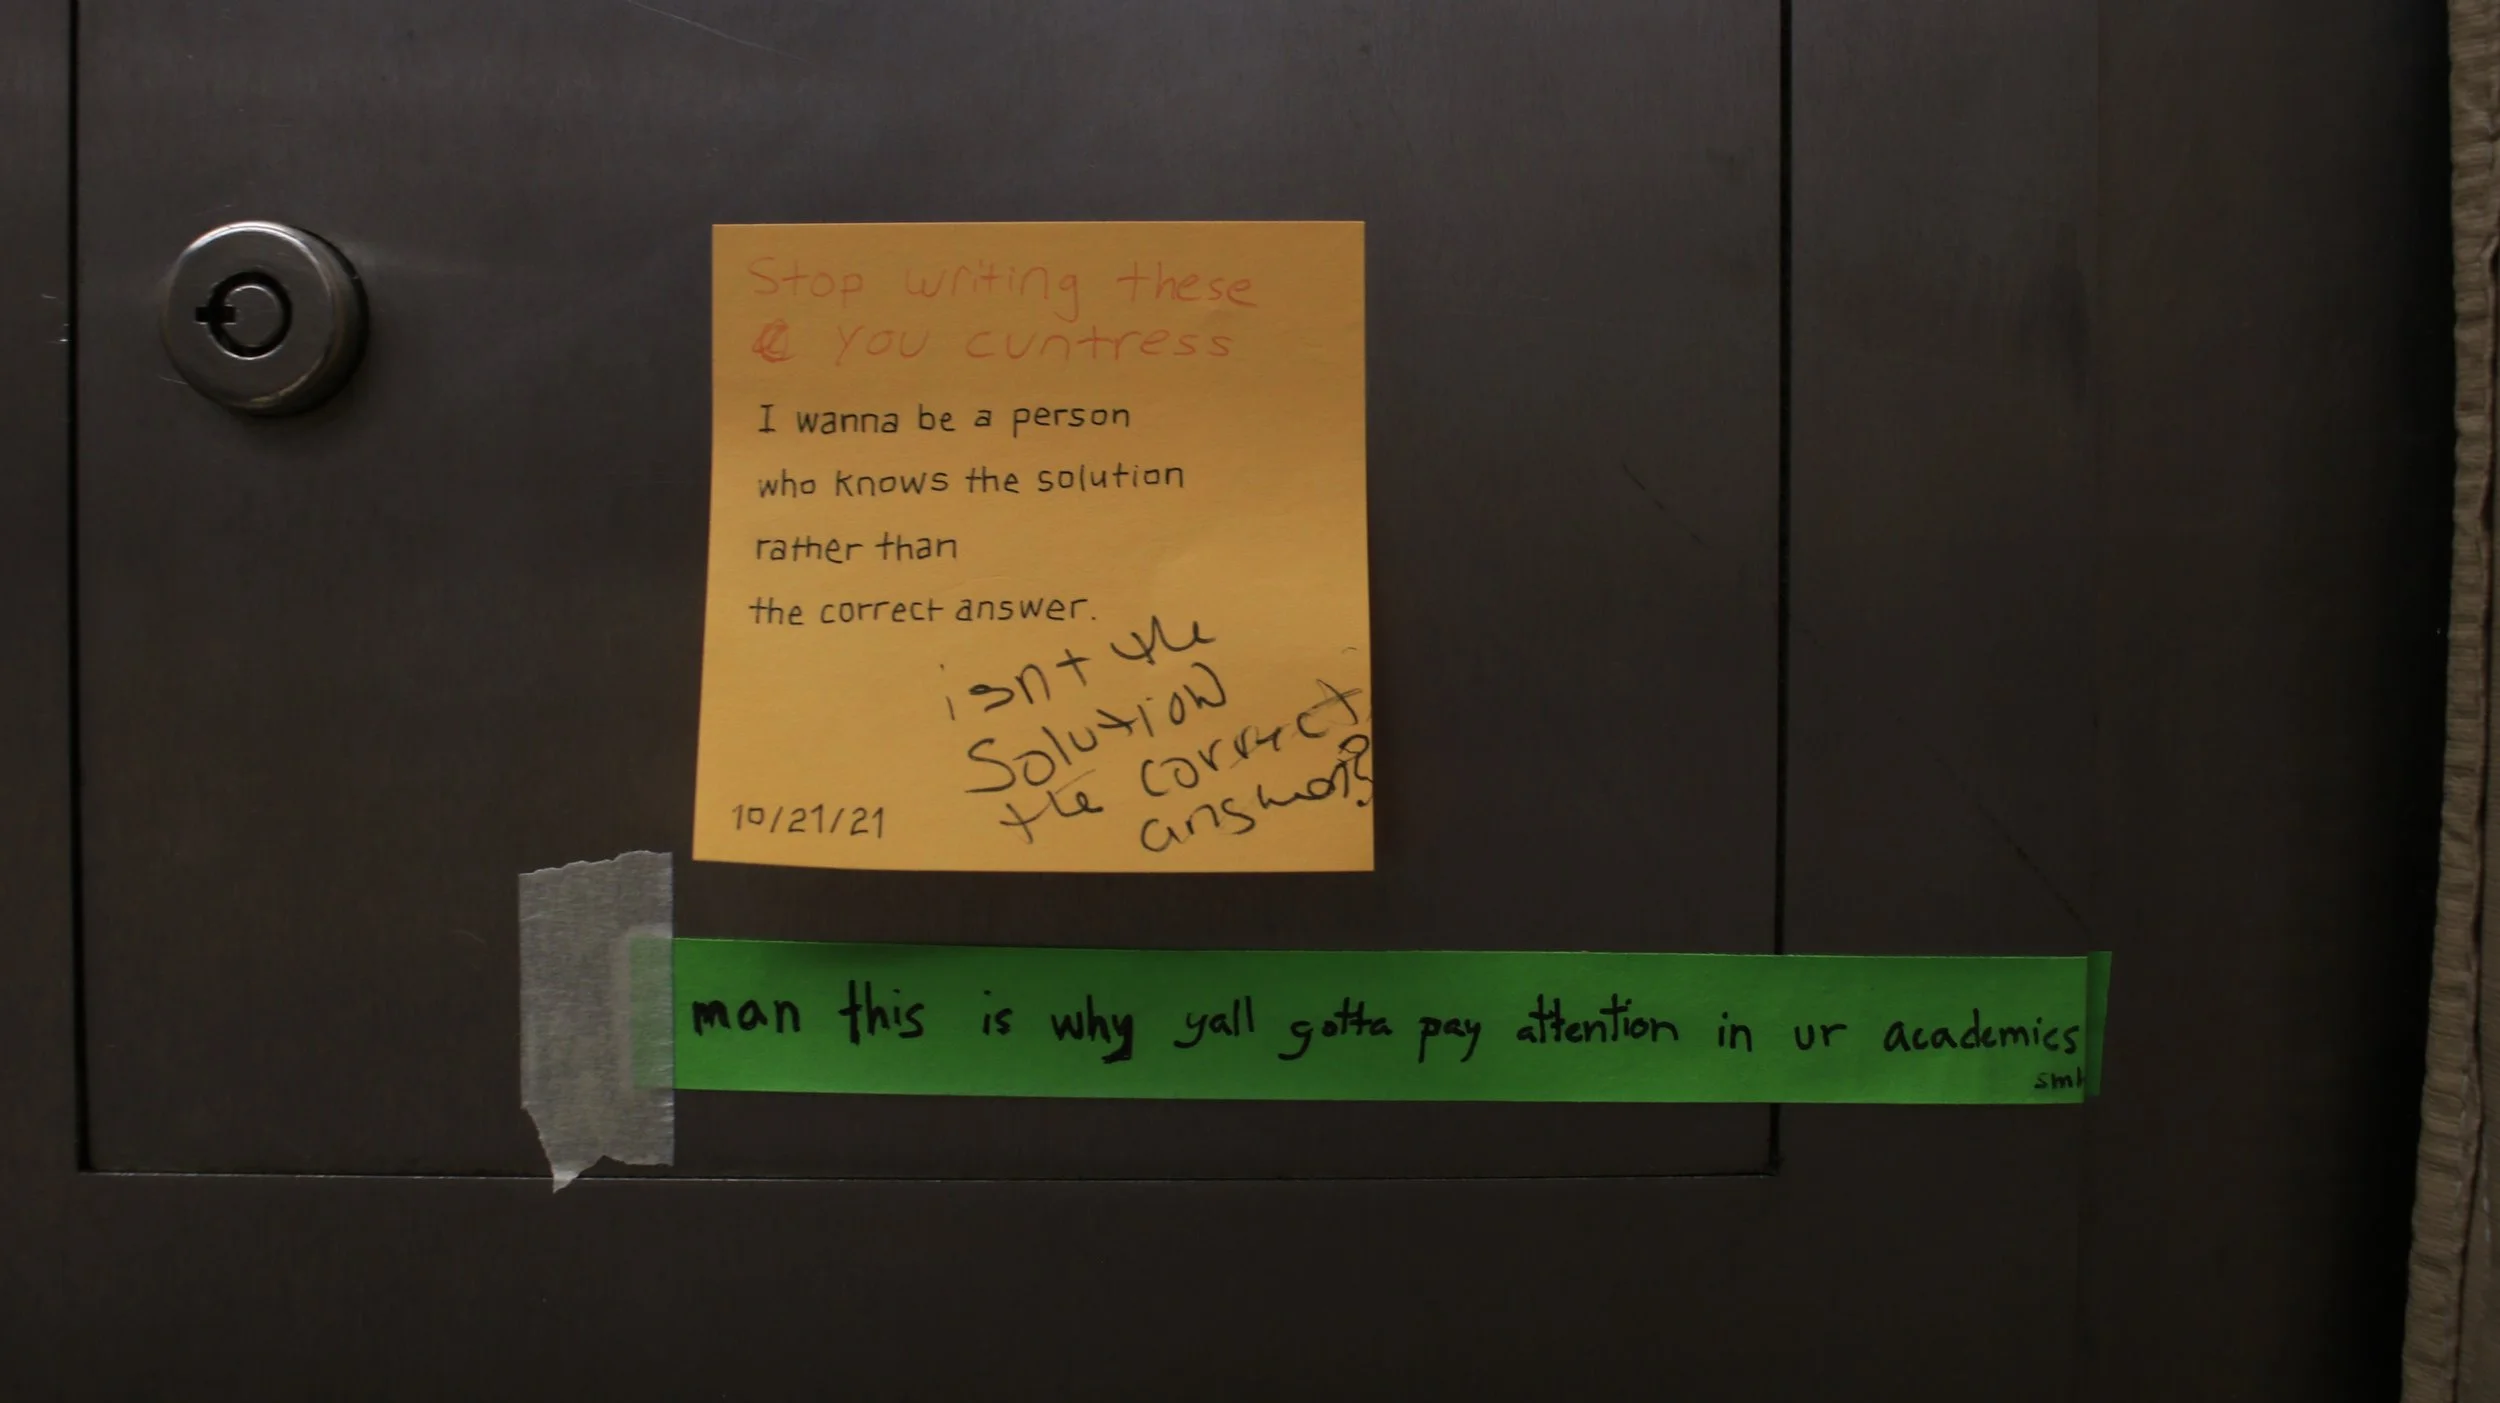 Stop writing these
You cuntress
I wanna be a person
who knows the solution
rather than
the correct answer.
isnt the
Solution
the correct
answer?
10/21/21
man this is why yall gotta pay attention in ur academics
smh